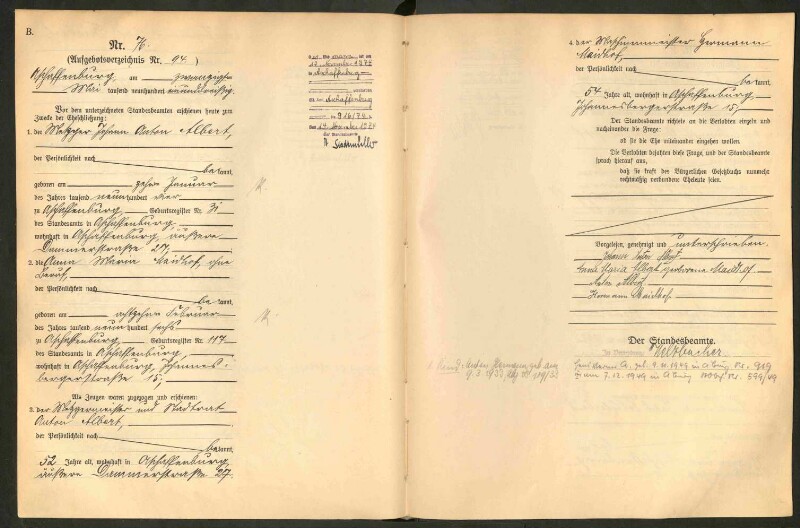 B.
Nr. 76.
(Aufgebotsverzeichnis Nr. 94)
Aschaffenburg, am zwanzigsten
Mai tausend neunhundert einunddreißig.
Vor dem unterzeichneten Standesbeamten erschienen heute zum
Zwecke der Eheschließung:
1. der Metzger Johann Anton Albert,
der Persönlichkeit nach
bekannt,
geboren am zehn Januar
des Jahres tausend neunhundert vier
zu Aschaffenburg, Geburtsregister Nr. 31
des Standesamts in Aschaffenburg
wohnhaft in Aschaffenburg, äußere
Dammerstraße 27,
2. die Anna Maria Maidhof, ohne
Beruf,
der Persönlichkeit nach
bekannt,
geboren am achtzehn Februar
des Jahres tausend neunhundert sechs
zu Aschaffenburg, Geburtsregister Nr. 117
des Standesamts in Aschaffenburg
wohnhaft in Aschaffenburg, Johannes-
bergerstraße 15,
Als Zeugen waren zugezogen und erschienen:
3. der Metzgermeister und Stadtrat
Anton Albert,
der Persönlichkeit nach
bekannt,
52 Jahre alt, wohnhaft in Aschaffenburg,
äußere Dammerstraße 27.
13. November 1974
Aschaffenburg
Aschaffenburg
916/74
den 14. November 1974
4. der Maschinenmeister Hermann
Maidhof,
der Persönlichkeit nach
bekannt,
54 Jahre alt, wohnhaft in Aschaffenburg,
Johannesbergerstraße 15,
Der Standesbeamte richtete an die Verlobten einzeln und
nacheinander die Frage:
ob sie die Ehe miteinander eingehen wollen.
Die Verlobten bejahten diese Frage, und der Standesbeamte
sprach hierauf aus,
daß sie kraft des Bürgerlichen Gesetzbuchs nunmehr
rechtmäßig verbundene Eheleute seien.
Vorgelesen, genehmigt und unterschrieben.
Johann Anton Albert
Anna Maria Albert geborene Maidhof
Anton Albert
Hermann Maidhof.
Der Standesbeamte.
In Vertretung: Welzbacher.
1. Kind: Anton Hermann, geb. am